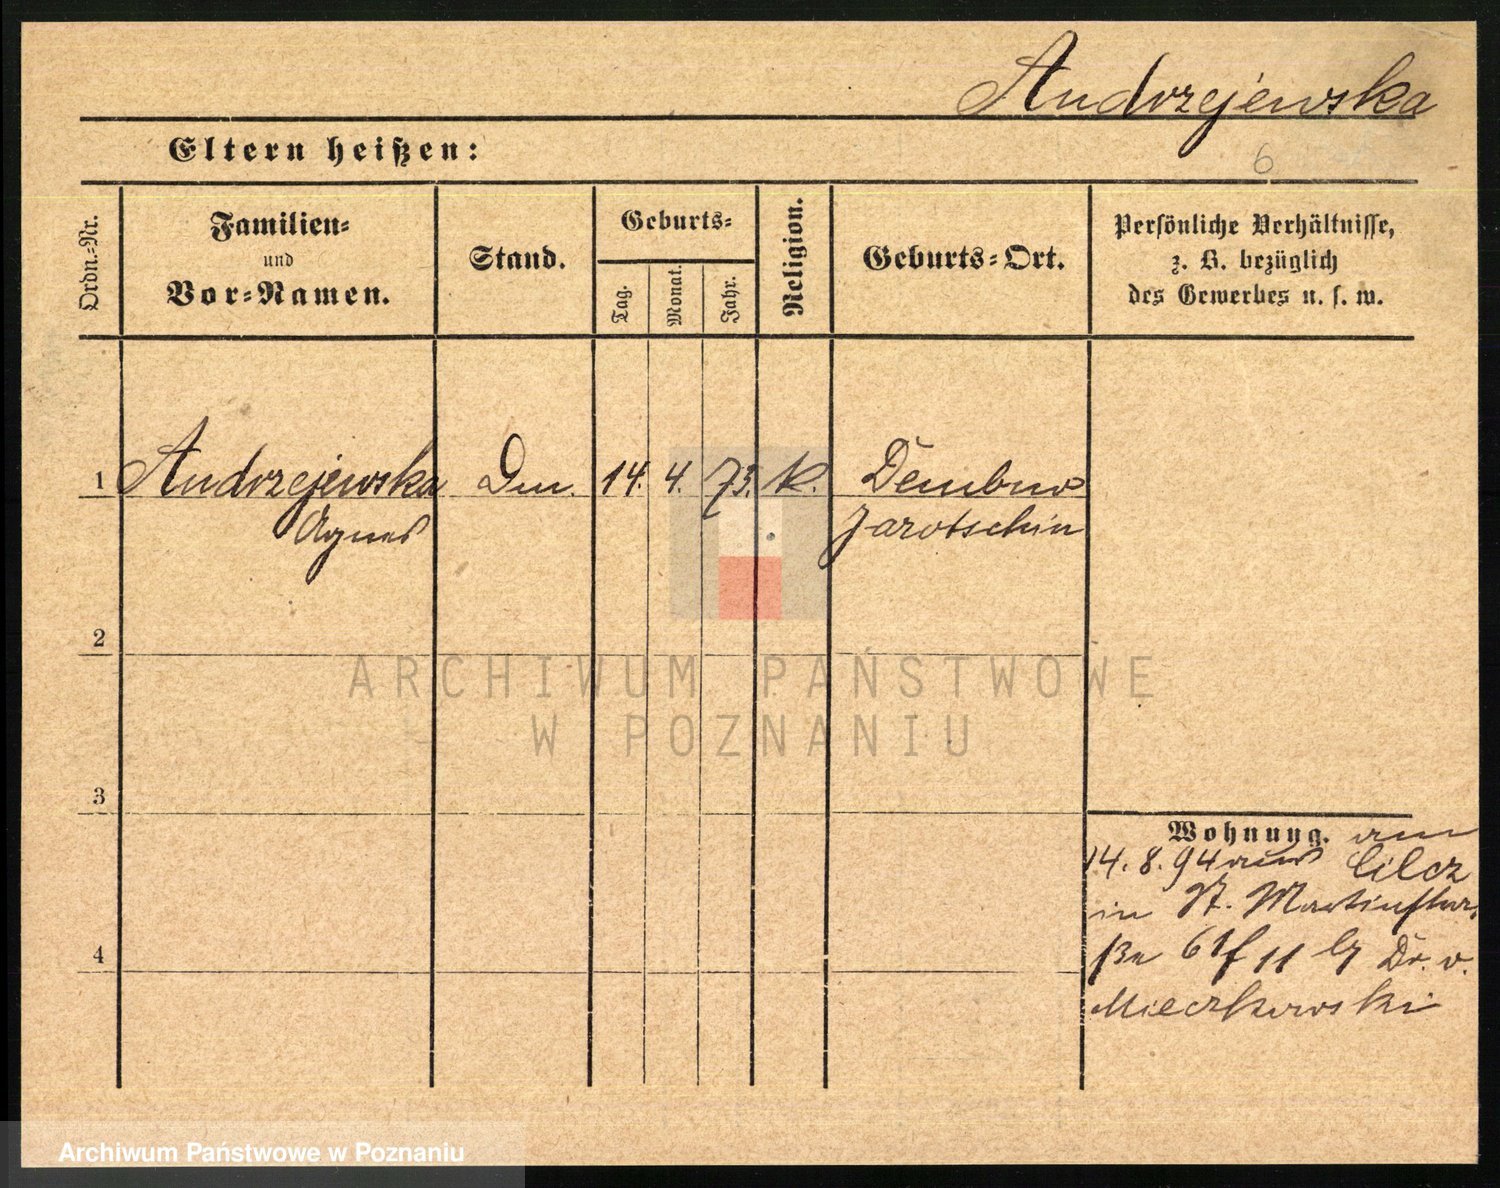 Andrzejewska
Eltern heißen:
6
Ordn.-Nr.
Familien-
und
Vor-Namen.
Stand.
Geburts-
Tag.
Monat.
Jahr.
Religion.
Geburts-Ort.
Persönliche Verhältnisse,
z. B. bezüglich
des Gewerbes u. s. w.
1 Andrzejewska 14. 4. 73. k. Dembno
Agnes Jarotschin
2
ARCHIWUM PAŃSTWOWE
W POZNANIU
3
Wohnung. am
14.8.94 aus
in St. Martinstra
ße 61 11 Dr. v.
Mieczkowski
4
Archiwum Państwowe w Poznaniu